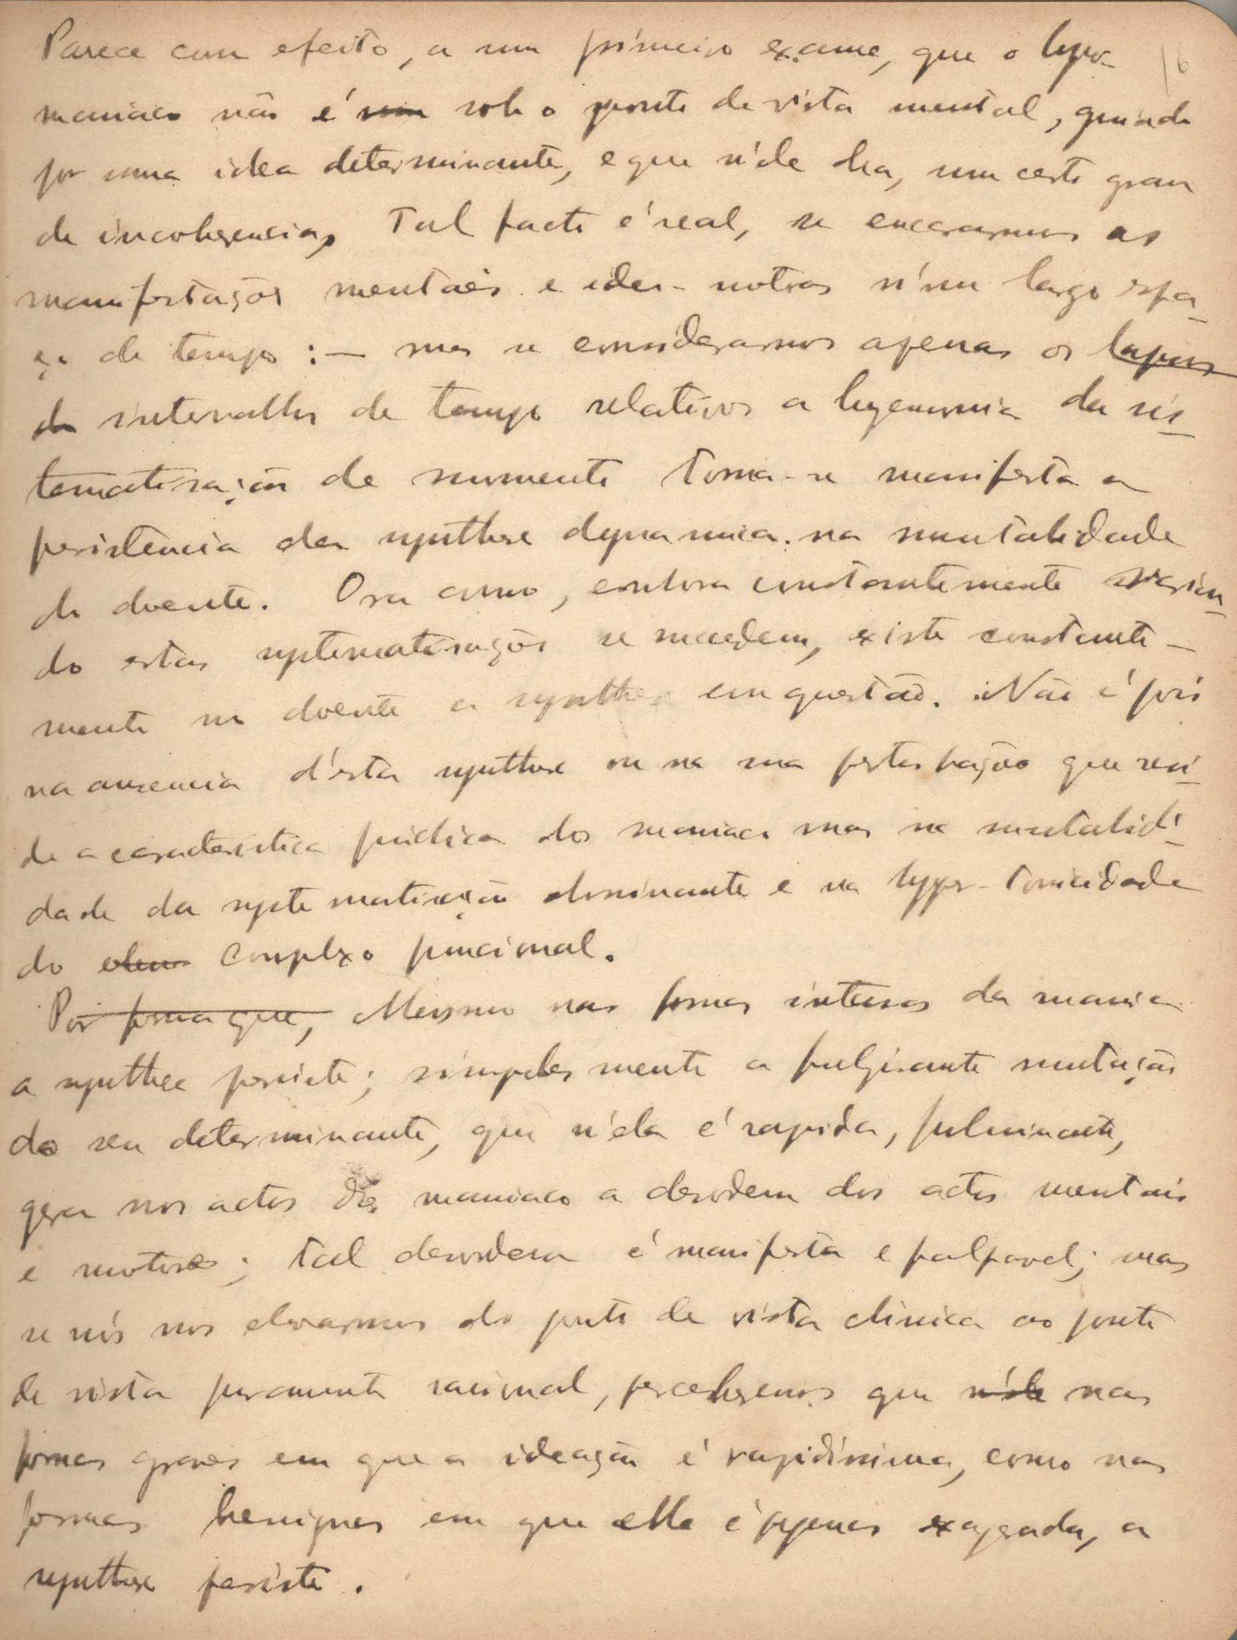 Parece com efeito, a um primeiro exame, que o hypo- 16
maniaco não é um sob o ponto de vista mental, guiado
por uma idea determinante, e que n'ele ha, um certo grau
de incoherencia, Tal facto é real, se encararmos as
manifestações mentaes e ideo-motoras n'um largo espa-
ço de tempo :— mas se considerarmos apenas os lapsos
de intervallos de tempo relativos a hegemonia da sis-
tematisação de momento torna-se manifesta a
persistencia da synthese dynamica na mentalidade
do doente. Ora como, embora constantemente varian-
do estas systematisações se succedem, existe constante-
mente no doente a synthese em questão. Não é pois
na ausencia d'esta synthese ou na sua perturbação que resi-
de a caracteristica psichica do maniaco mas na mutabili-
dade da systematisação dominante e na hyper-tonicidade
do complexo funcional.
Por forma que, Mesmo nas formas intensas da mania
a synthese persiste; simplesmente a fulgurante mutação
do seu determinante, que n'ela é rapida, fulminante,
gera nos actos do maniaco a desordem dos actos mentais
e motores; tal desordem é manifesta e palpavel; mas
se nós nos elevarmos do ponto de vista clinico ao ponto
de vista puramente racional, percebemos que n'ele nas
formas graves em que a ideação é rapidissima, como nas
formas benignas em que ella é apenas exagerada, a
synthese persiste.